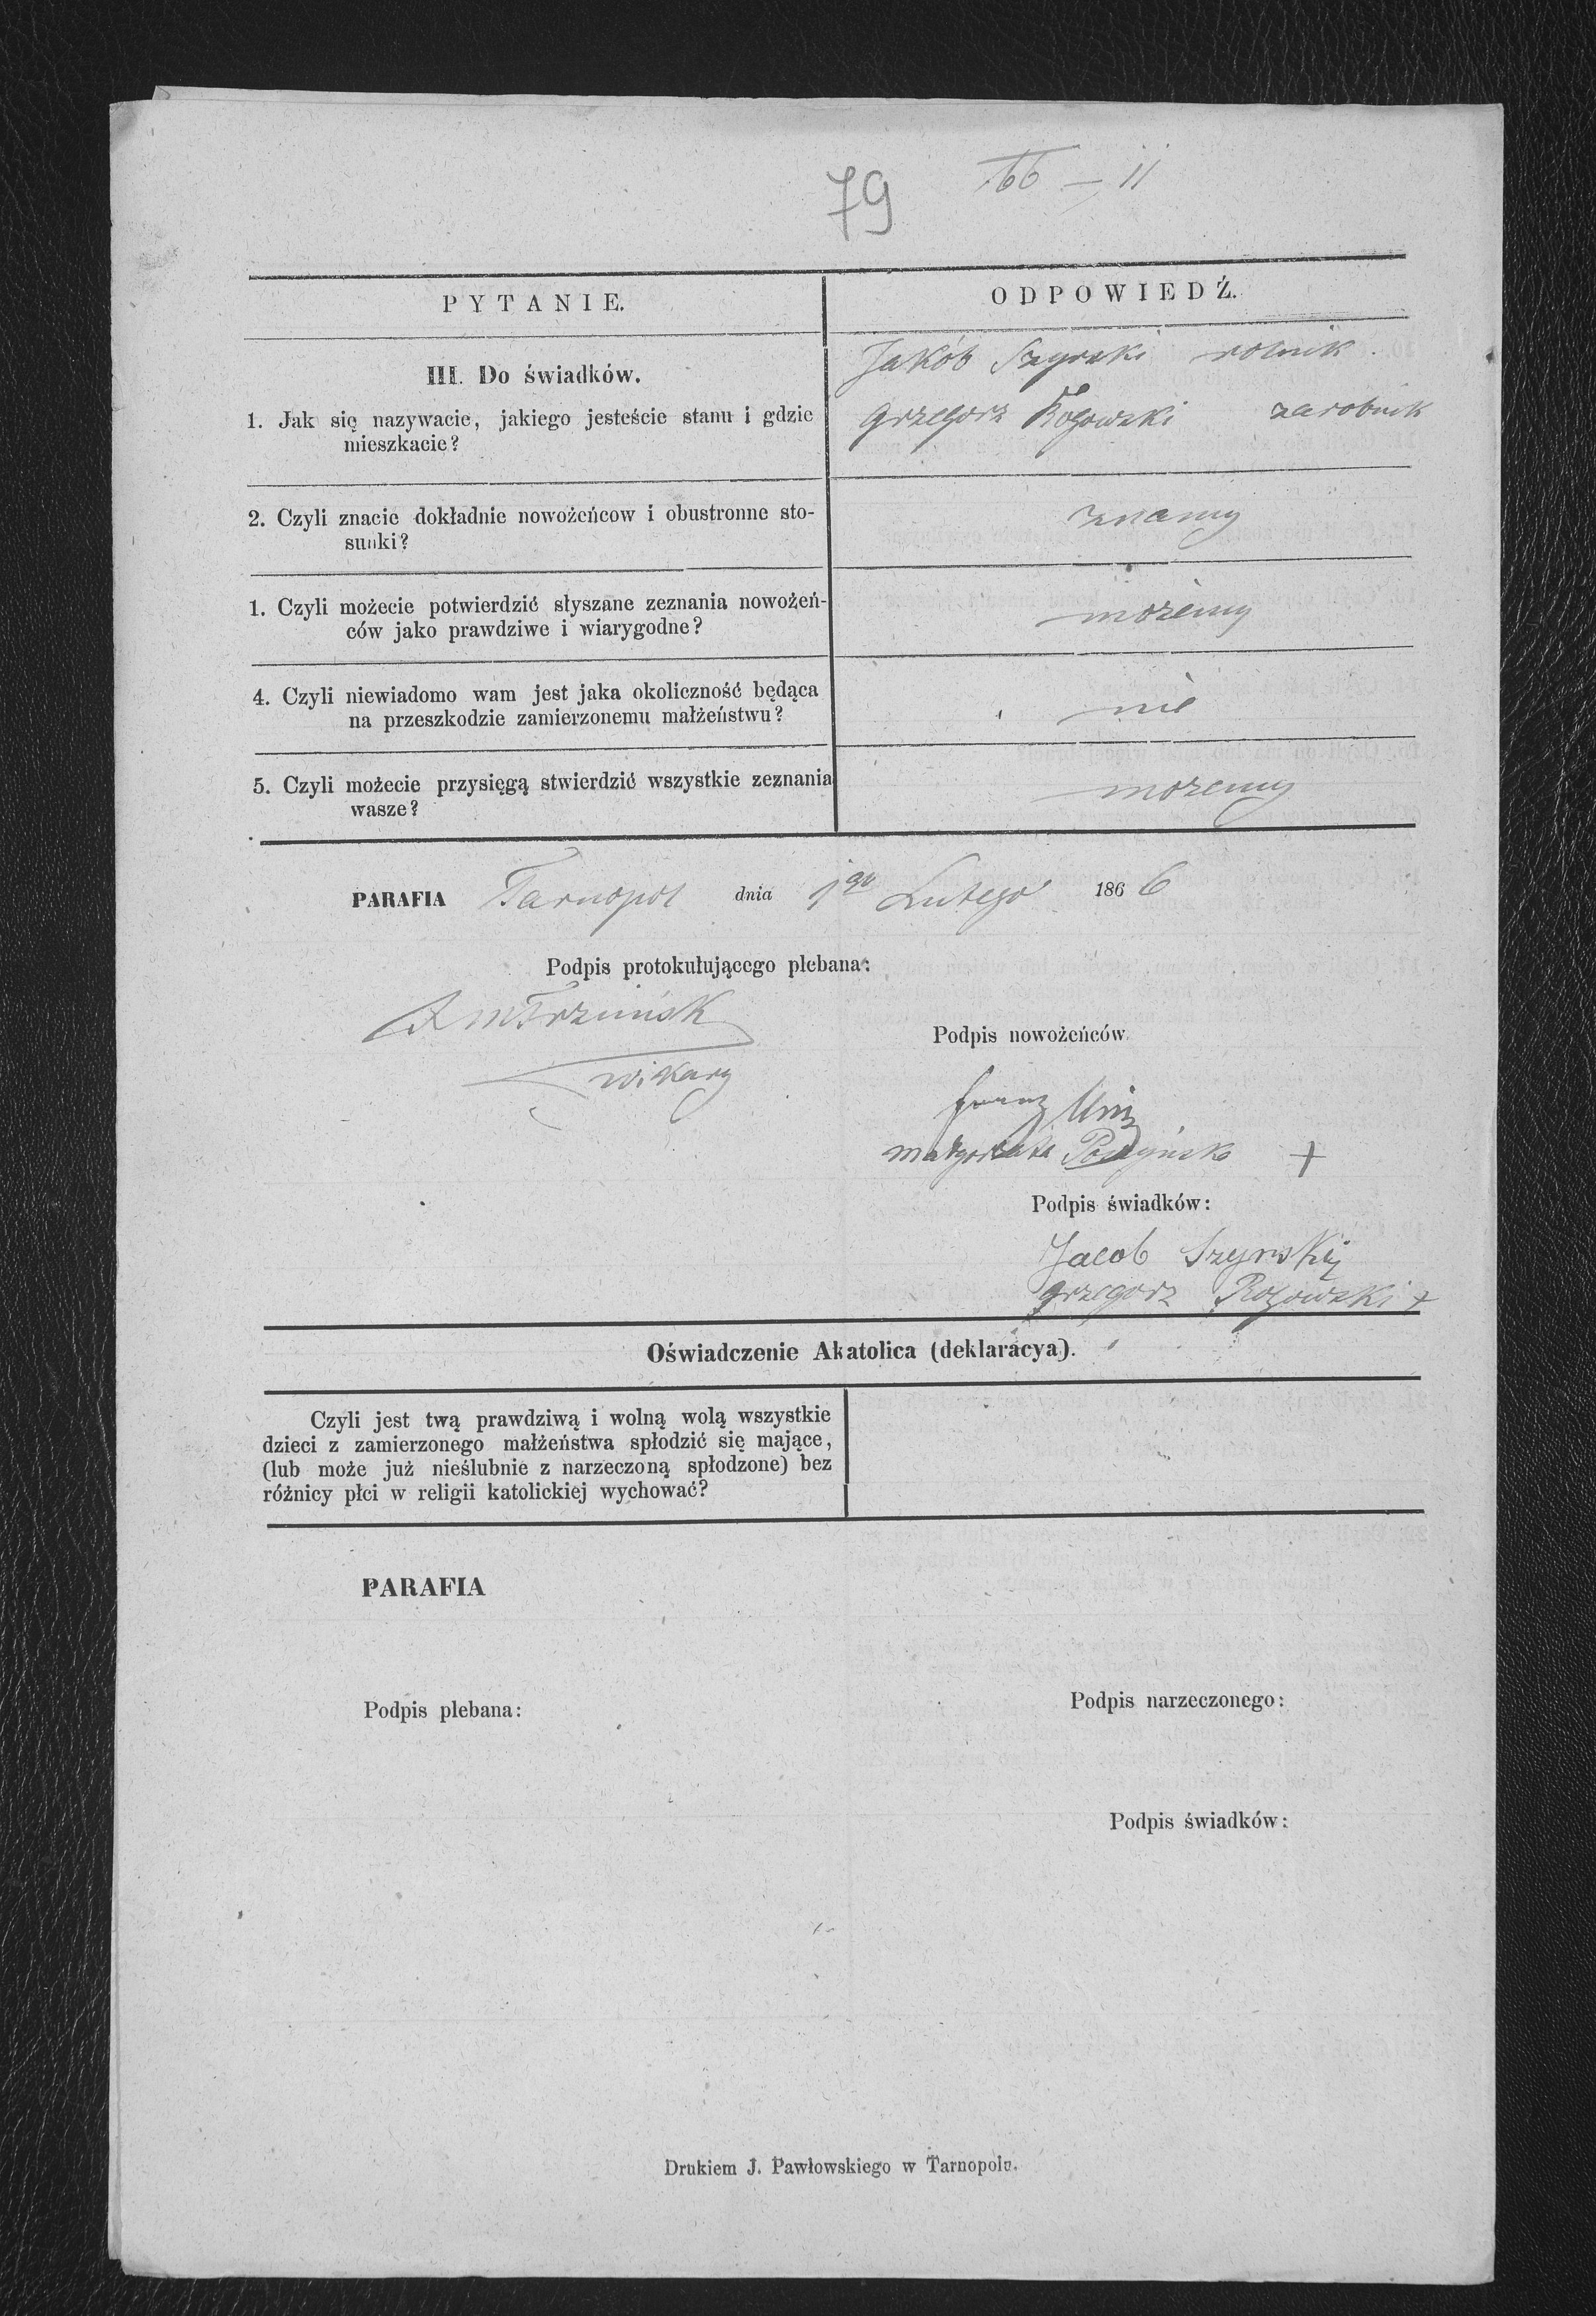 79 66 — 11
PYTANIE.
ODPOWIEDŹ.
III. Do świadków.
Jakób Szyrski rolnik.
1. Jak się nazywacie, jakiego jesteście stanu i gdzie
mieszkacie?
Grzegorz Rogowski zarobnik
2. Czyli znacie dokładnie nowożeńcow i obustronne sto-
sunki?
znamy
1. Czyli możecie potwierdzić słyszane zeznania nowożeń-
ców jako prawdziwe i wiarygodne?
możemy
4. Czyli niewiadomo wam jest jaka okoliczność będąca
na przeszkodzie zamierzonemu małżeństwu?
nie
5. Czyli możecie przysięgą stwierdzić wszystkie zeznania
wasze?
możemy
PARAFIA Tarnopol dnia 1go Lutego 1866
Podpis protokułującego plebana:
wikary
Podpis nowożeńców
Franz
Małgorzata +
Podpis świadków:
Jacob Szyrskij
Grzegorz Rogowski +
Oświadczenie Akatolica (deklaracya).
Czyli jest twą prawdziwą i wolną wolą wszystkie
dzieci z zamierzonego małżeństwa spłodzić się mające,
(lub może już nieślubnie z narzeczoną spłodzone) bez
różnicy płci w religii katolickiej wychować?
PARAFIA
Podpis plebana:
Podpis narzeczonego:
Podpis świadków:
Drukiem J. Pawłowskiego w Tarnopolu.